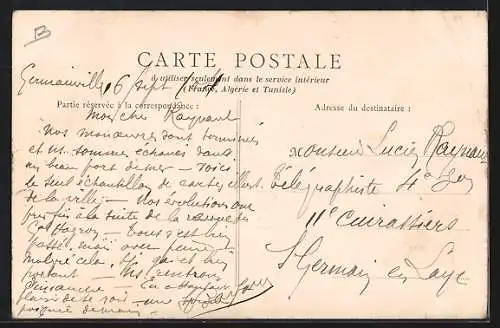 B
CARTE POSTALE
à utiliser seulement dans le service intérieur
(France, Algérie et Tunisie)
Germainville, 6 Sept
Partie réservée à la correspondance :
Adresse du destinataire :
Mon cher Raynaud
Nos manœuvres sont terminées
et ns. sommes échoués dans
un beau port de mer — Voici
le seul échantillon de cartes illust.
de la ville — Nos évolutions ont
pris fin à la suite de la
Tout s'est bien
passé, mais avec peine
malgré cela,
portant — Ns rentrons
Dimanche — En attendant
plaisir de te voir — une
poignée de main
Monsieur Lucien Raynaud
Télégraphiste 4e
11e Cuirassiers
St Germain en Laye